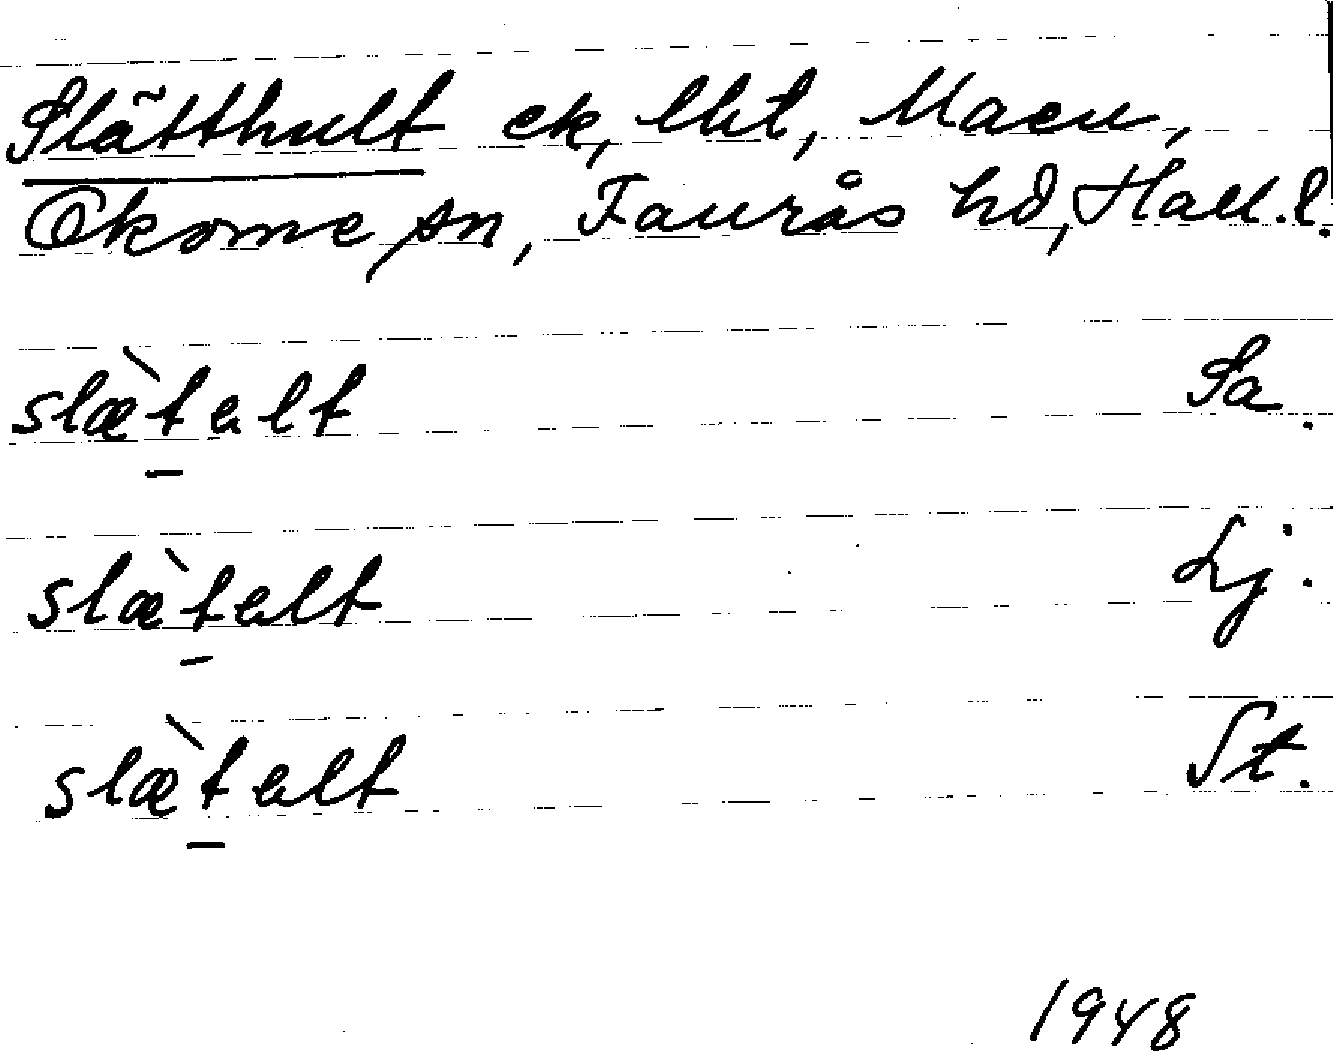 Slätthult ek, lht,
Okome sn, Faurås hd, Hall. l.
slæ̀talt Sa.
slæ̀talt Lj.
slæ̀talt St.
1948